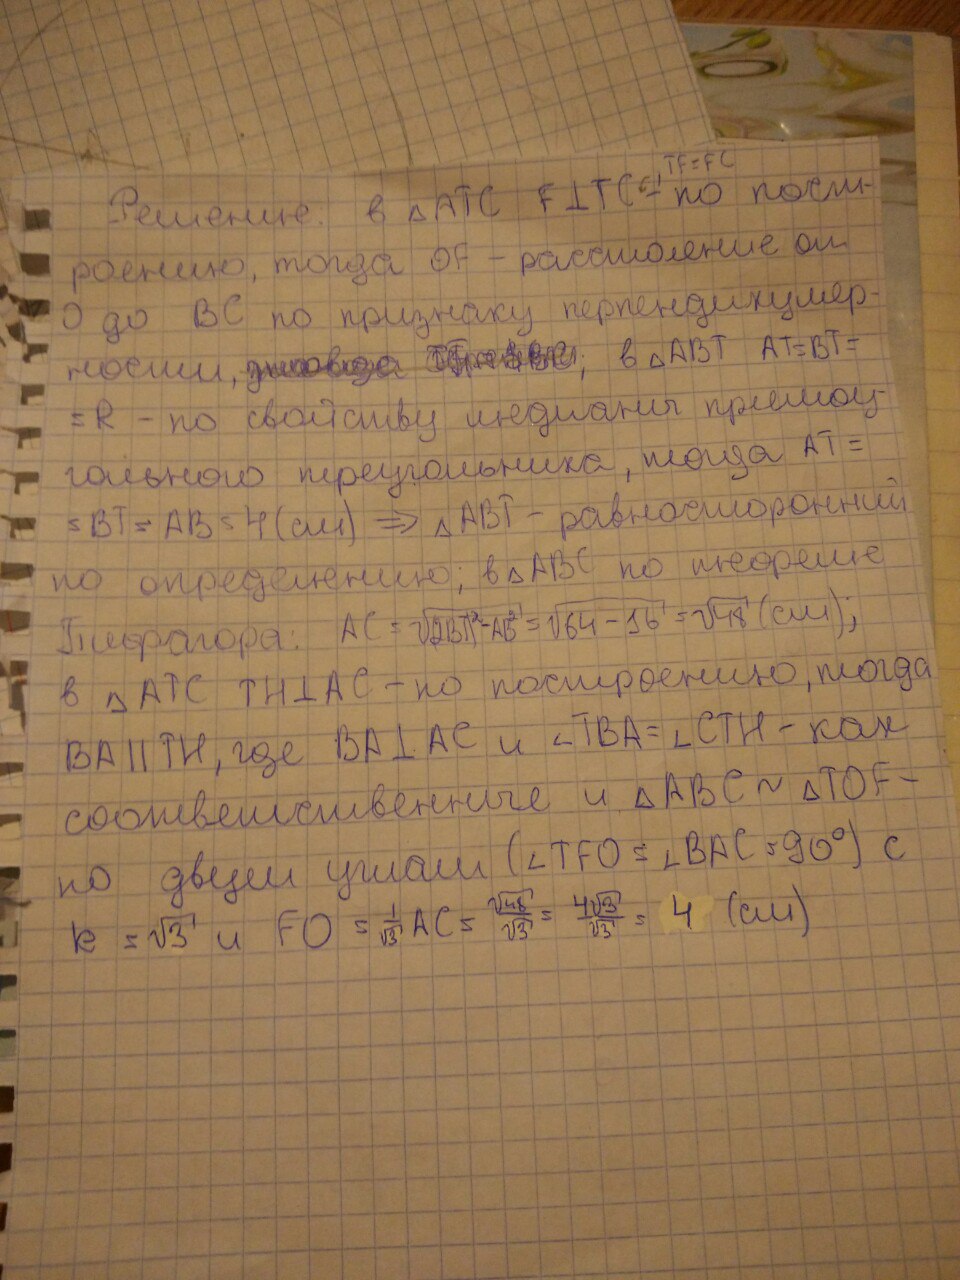 TF=FC
Решение. в △ATC F⊥TC - по пост-
роению, тогда OF - расстояние от
О до BC по признаку перпендикуляр-
ности, ; в △ABT AT=BT=
=R - по свойству медианы прямоу-
гольного треугольника, тогда AT=
=BT=AB=4(см) ⇒ △ABT - равносторонний
по определению; в △ABC по теореме
Пифагора: AC=√(2BT)²-AB²=√64-16=√48(см);
в △ATC TH⊥AC - по построению, тогда
BA||TH, где BA⊥AC и ∠TBA=∠CTH - как
соответственные и △ABC~△TOF -
по двум углам (∠TFO=∠BAC=90°) с
k=√3 и FO=1/√3 AC=√48/√3=4√3/√3=4 (см)